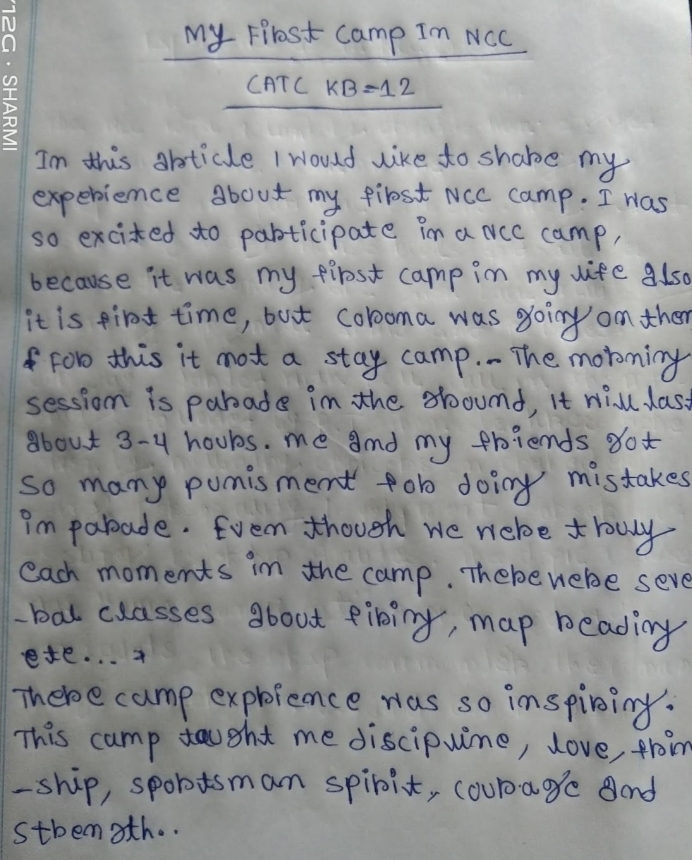 12G · SHARMI
My First Camp In NCC
CATC KB=12
In this article I would like to share my
experience about my first NCC camp. I was
so excited to participate in a NCC camp,
because it was my first camp in my life also
it is first time, but corona was going on then
for this it not a stay camp.- The morning
session is parade in the ground, it will last
about 3-4 hours. me and my friends got
so many punisment for doing mistakes
in parade. Even though we were truly
Each moments in the camp. There were seve
-ral classes about firing, map reading
ete...
There camp exprience was so inspiring.
This camp taught me discipline, love, frin
-ship, sportsman spirit, courage and
strength..